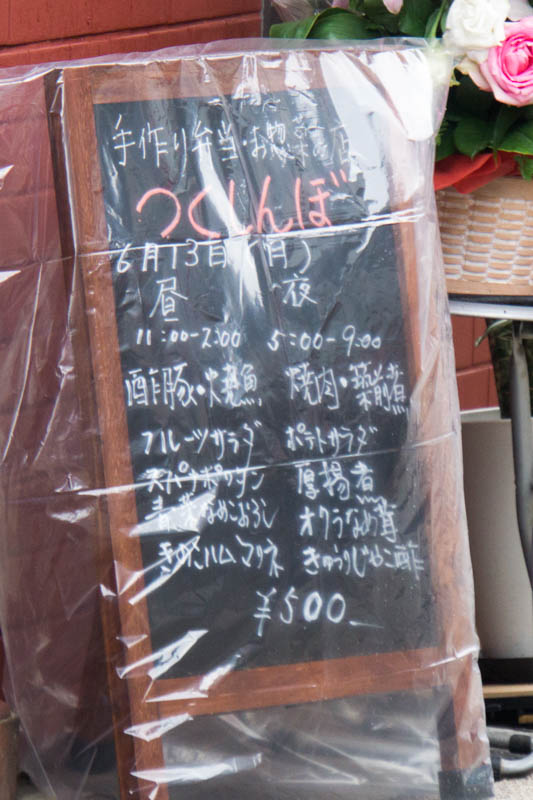 手作り弁当・お惣菜店
つくしんぼ
6月13日(月)
昼 夜
11:00-2:00 5:00-9:00
酢豚・焼魚 焼肉・筑前煮
フルーツサラダ ポテトサラダ
スパゲナポリタン 厚揚煮
なめこおろし オクラなめ茸
きのこハムマリネ きゅうりじゃこ酢
¥500